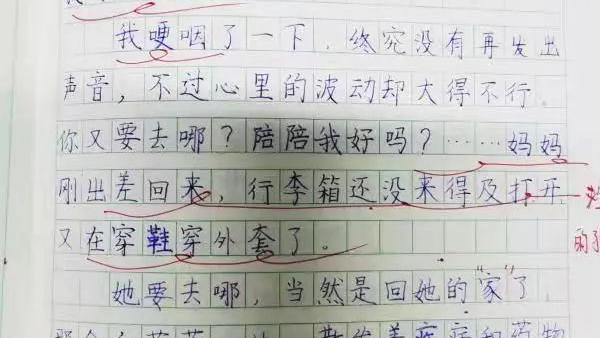 我哽咽了一下，终究没有再发出
声音，不过心里的波动却大得不行。
你又要去哪？陪陪我好吗？……妈妈
刚出差回来，行李箱还没来得及打开，
又在穿鞋穿外套了。
她要去哪，当然是回她的"家"了
的